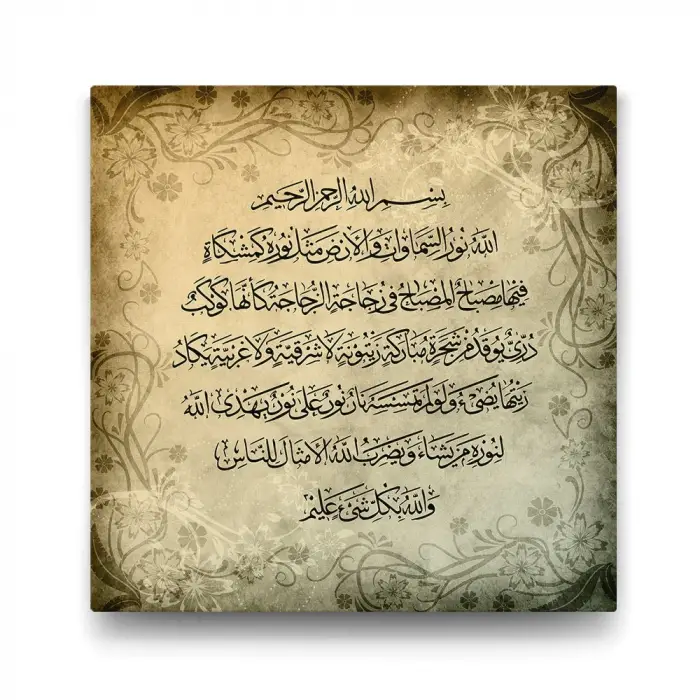 بِسْمِ اللهِ الرَّحْمٰنِ الرَّحِيْمِ
اللهُ نُورُ السَّمَاوَاتِ وَالْأَرْضِ مَثَلُ نُورِهِ كَمِشْكَاةٍ
فِيهَا مِصْبَاحٌ الْمِصْبَاحُ فِي زُجَاجَةٍ الزُّجَاجَةُ كَأَنَّهَا كَوْكَبٌ
دُرِّيٌّ يُوقَدُ مِنْ شَجَرَةٍ مُبَارَكَةٍ زَيْتُونَةٍ لَا شَرْقِيَّةٍ وَلَا غَرْبِيَّةٍ يَكَادُ
زَيْتُهَا يُضِيءُ وَلَوْ لَمْ تَمْسَسْهُ نَارٌ نُورٌ عَلَى نُورٍ يَهْدِي اللهُ
لِنُورِهِ مَنْ يَشَاءُ وَيَضْرِبُ اللهُ الْأَمْثَالَ لِلنَّاسِ
وَاللهُ بِكُلِّ شَيْءٍ عَلِيمٌ